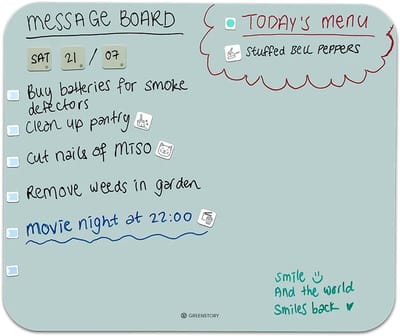 MESSAGE BOARD
TODAY'S MENU
SAT 21 / 07
Stuffed BELL PEPPERS
Buy batteries for smoke
detectors
Clean up pantry
Cut nails of MISO
Remove weeds in garden
movie night at 22:00
Smile
And the world
Smiles back
GREENSTORY